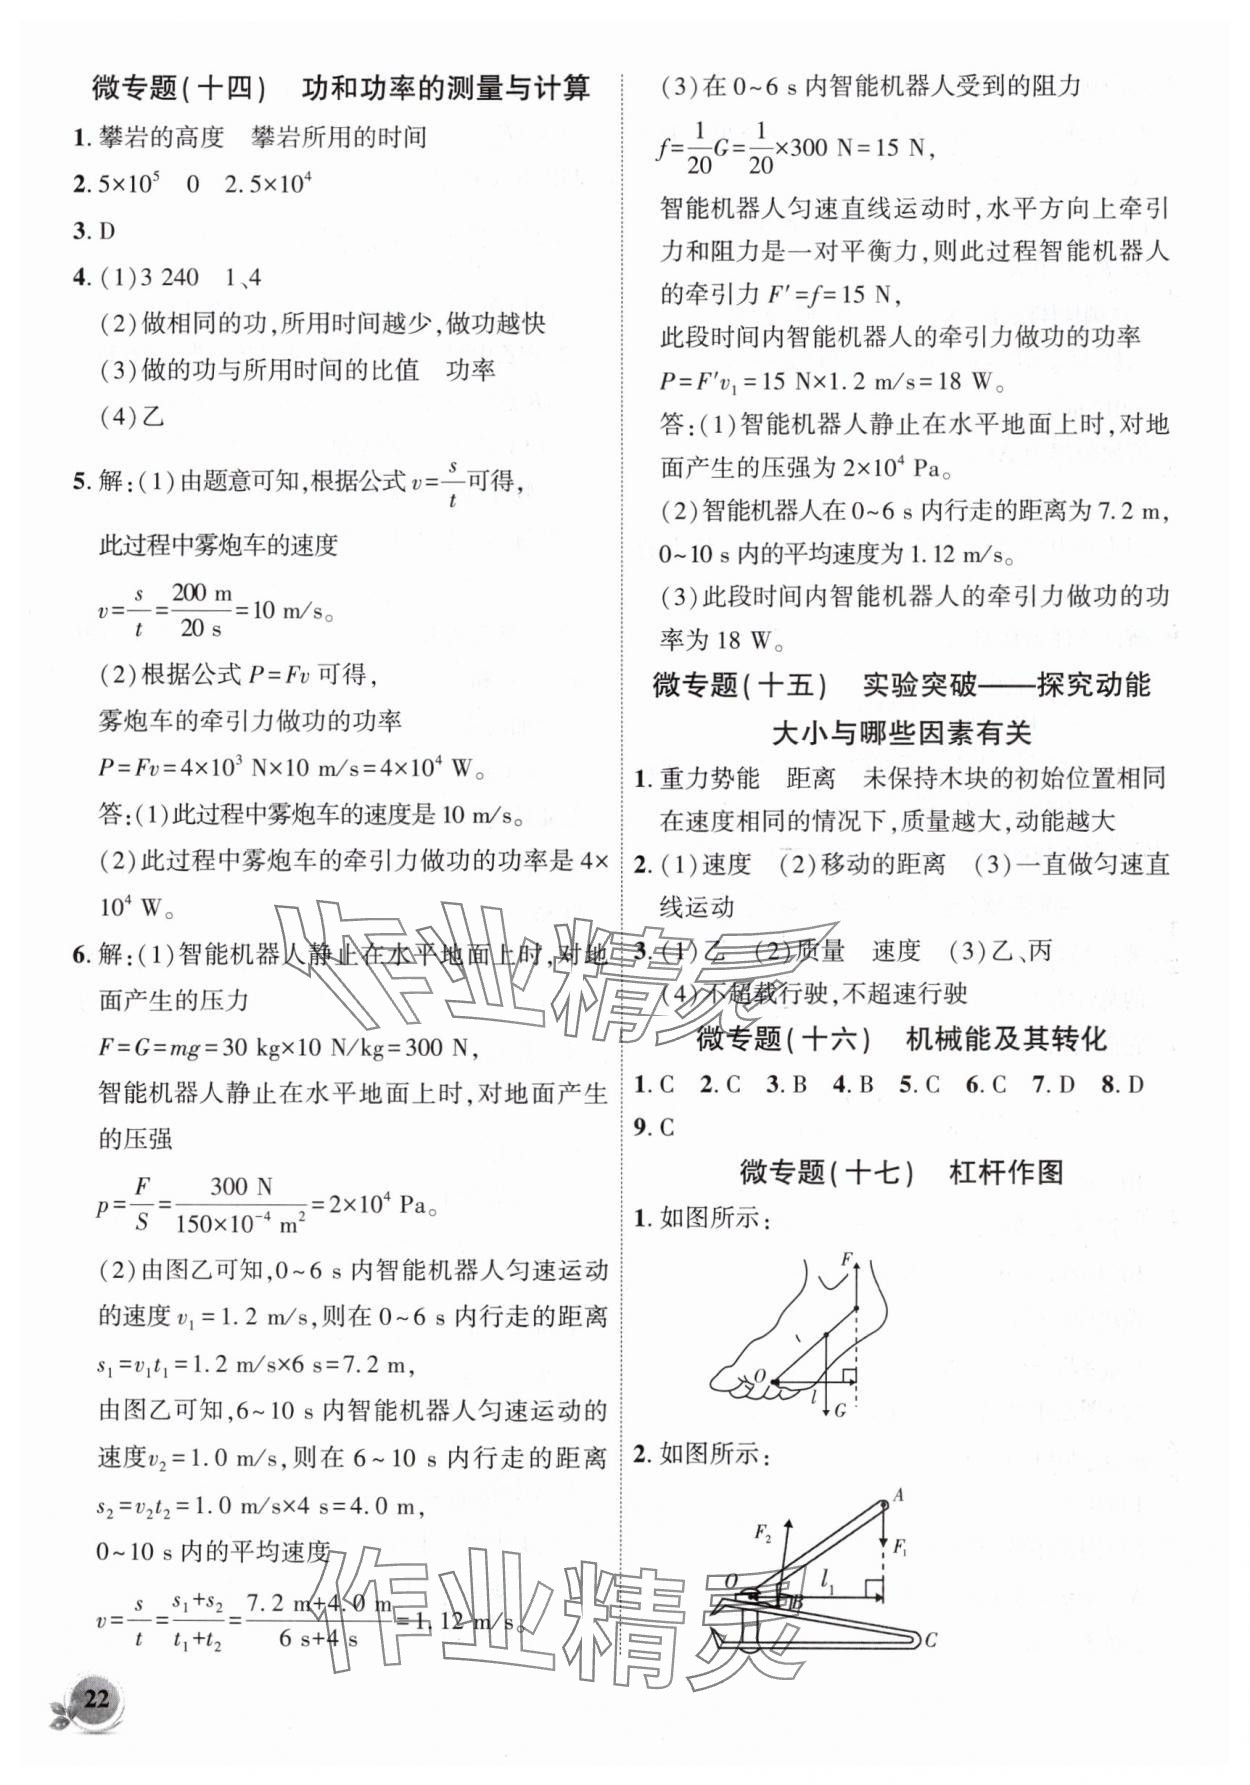 微专题(十四)　功和功率的测量与计算
1. 攀岩的高度　攀岩所用的时间
2. 5×10⁵　0　2.5×10⁴
3. D
4. (1)3 240　1、4
(2)做相同的功,所用时间越少,做功越快
(3)做的功与所用时间的比值　功率
(4)乙
5. 解:(1)由题意可知,根据公式 v=s/t可得,
此过程中雾炮车的速度
v=s/t=200 m/20 s=10 m/s。
(2)根据公式 P=Fv 可得,
雾炮车的牵引力做功的功率
P=Fv=4×10³ N×10 m/s=4×10⁴ W。
答:(1)此过程中雾炮车的速度是 10 m/s。
(2)此过程中雾炮车的牵引力做功的功率是 4×
10⁴ W。
6. 解:(1)智能机器人静止在水平地面上时,对地
面产生的压力
F=G=mg=30 kg×10 N/kg=300 N,
智能机器人静止在水平地面上时,对地面产生
的压强
p=F/S=300 N/150×10⁻⁴ m²=2×10⁴ Pa。
(2)由图乙可知,0~6 s 内智能机器人匀速运动
的速度 v₁=1.2 m/s,则在 0~6 s 内行走的距离
s₁=v₁t₁=1.2 m/s×6 s=7.2 m,
由图乙可知,6~10 s 内智能机器人匀速运动的
速度v₂=1.0 m/s,则在 6~10 s 内行走的距离
s₂=v₂t₂=1.0 m/s×4 s=4.0 m,
0~10 s 内的平均速度
v=s/t=s₁+s₂/t₁+t₂=7.2 m+4.0 m/6 s+4 s=1.12 m/s。
22
(3)在 0~6 s 内智能机器人受到的阻力
f=1/20G=1/20×300 N=15 N,
智能机器人匀速直线运动时,水平方向上牵引
力和阻力是一对平衡力,则此过程智能机器人
的牵引力 F′=f=15 N,
此段时间内智能机器人的牵引力做功的功率
P=F′v₁=15 N×1.2 m/s=18 W。
答:(1)智能机器人静止在水平地面上时,对地
面产生的压强为 2×10⁴ Pa。
(2)智能机器人在 0~6 s 内行走的距离为 7.2 m,
0~10 s 内的平均速度为 1.12 m/s。
(3)此段时间内智能机器人的牵引力做功的功
率为 18 W。
微专题(十五)　实验突破——探究动能
大小与哪些因素有关
1. 重力势能　距离　未保持木块的初始位置相同
在速度相同的情况下,质量越大,动能越大
2. (1)速度　(2)移动的距离　(3)一直做匀速直
线运动
3. (1)乙　(2)质量　速度　(3)乙、丙
(4)不超载行驶,不超速行驶
微专题(十六)　机械能及其转化
1. C　2. C　3. B　4. B　5. C　6. C　7. D　8. D
9. C
微专题(十七)　杠杆作图
1. 如图所示:
F
O
l
G
2. 如图所示:
A
F₂
F₁
O
l₁
B
C
作业精灵
作业精灵